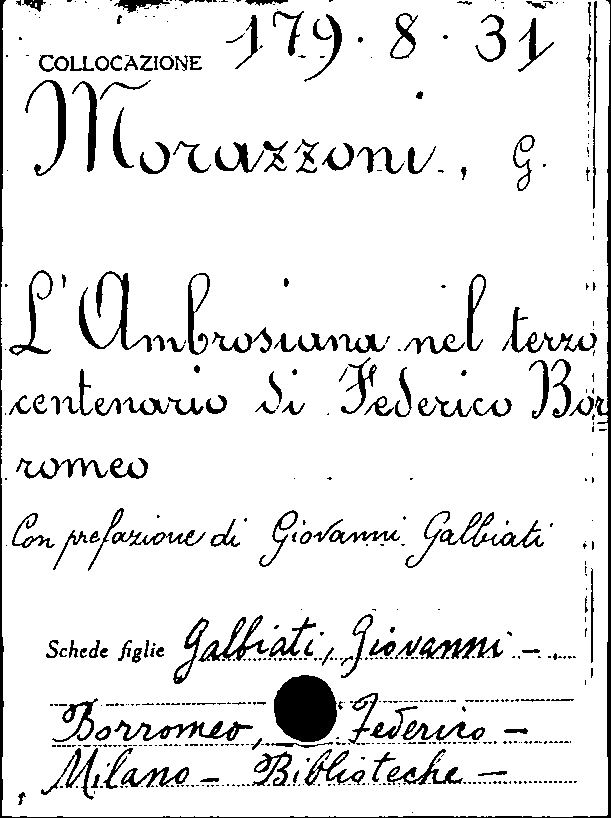 COLLOCAZIONE 179.8.31
Morazzoni, G.
L'Ambrosiana nel terzo
centenario di Federico Bor
romeo
Con prefazione di Giovanni Galbiati
Schede figlie Galbiati, Giovanni -.
Borromeo, Federico -
Milano - Biblioteche -